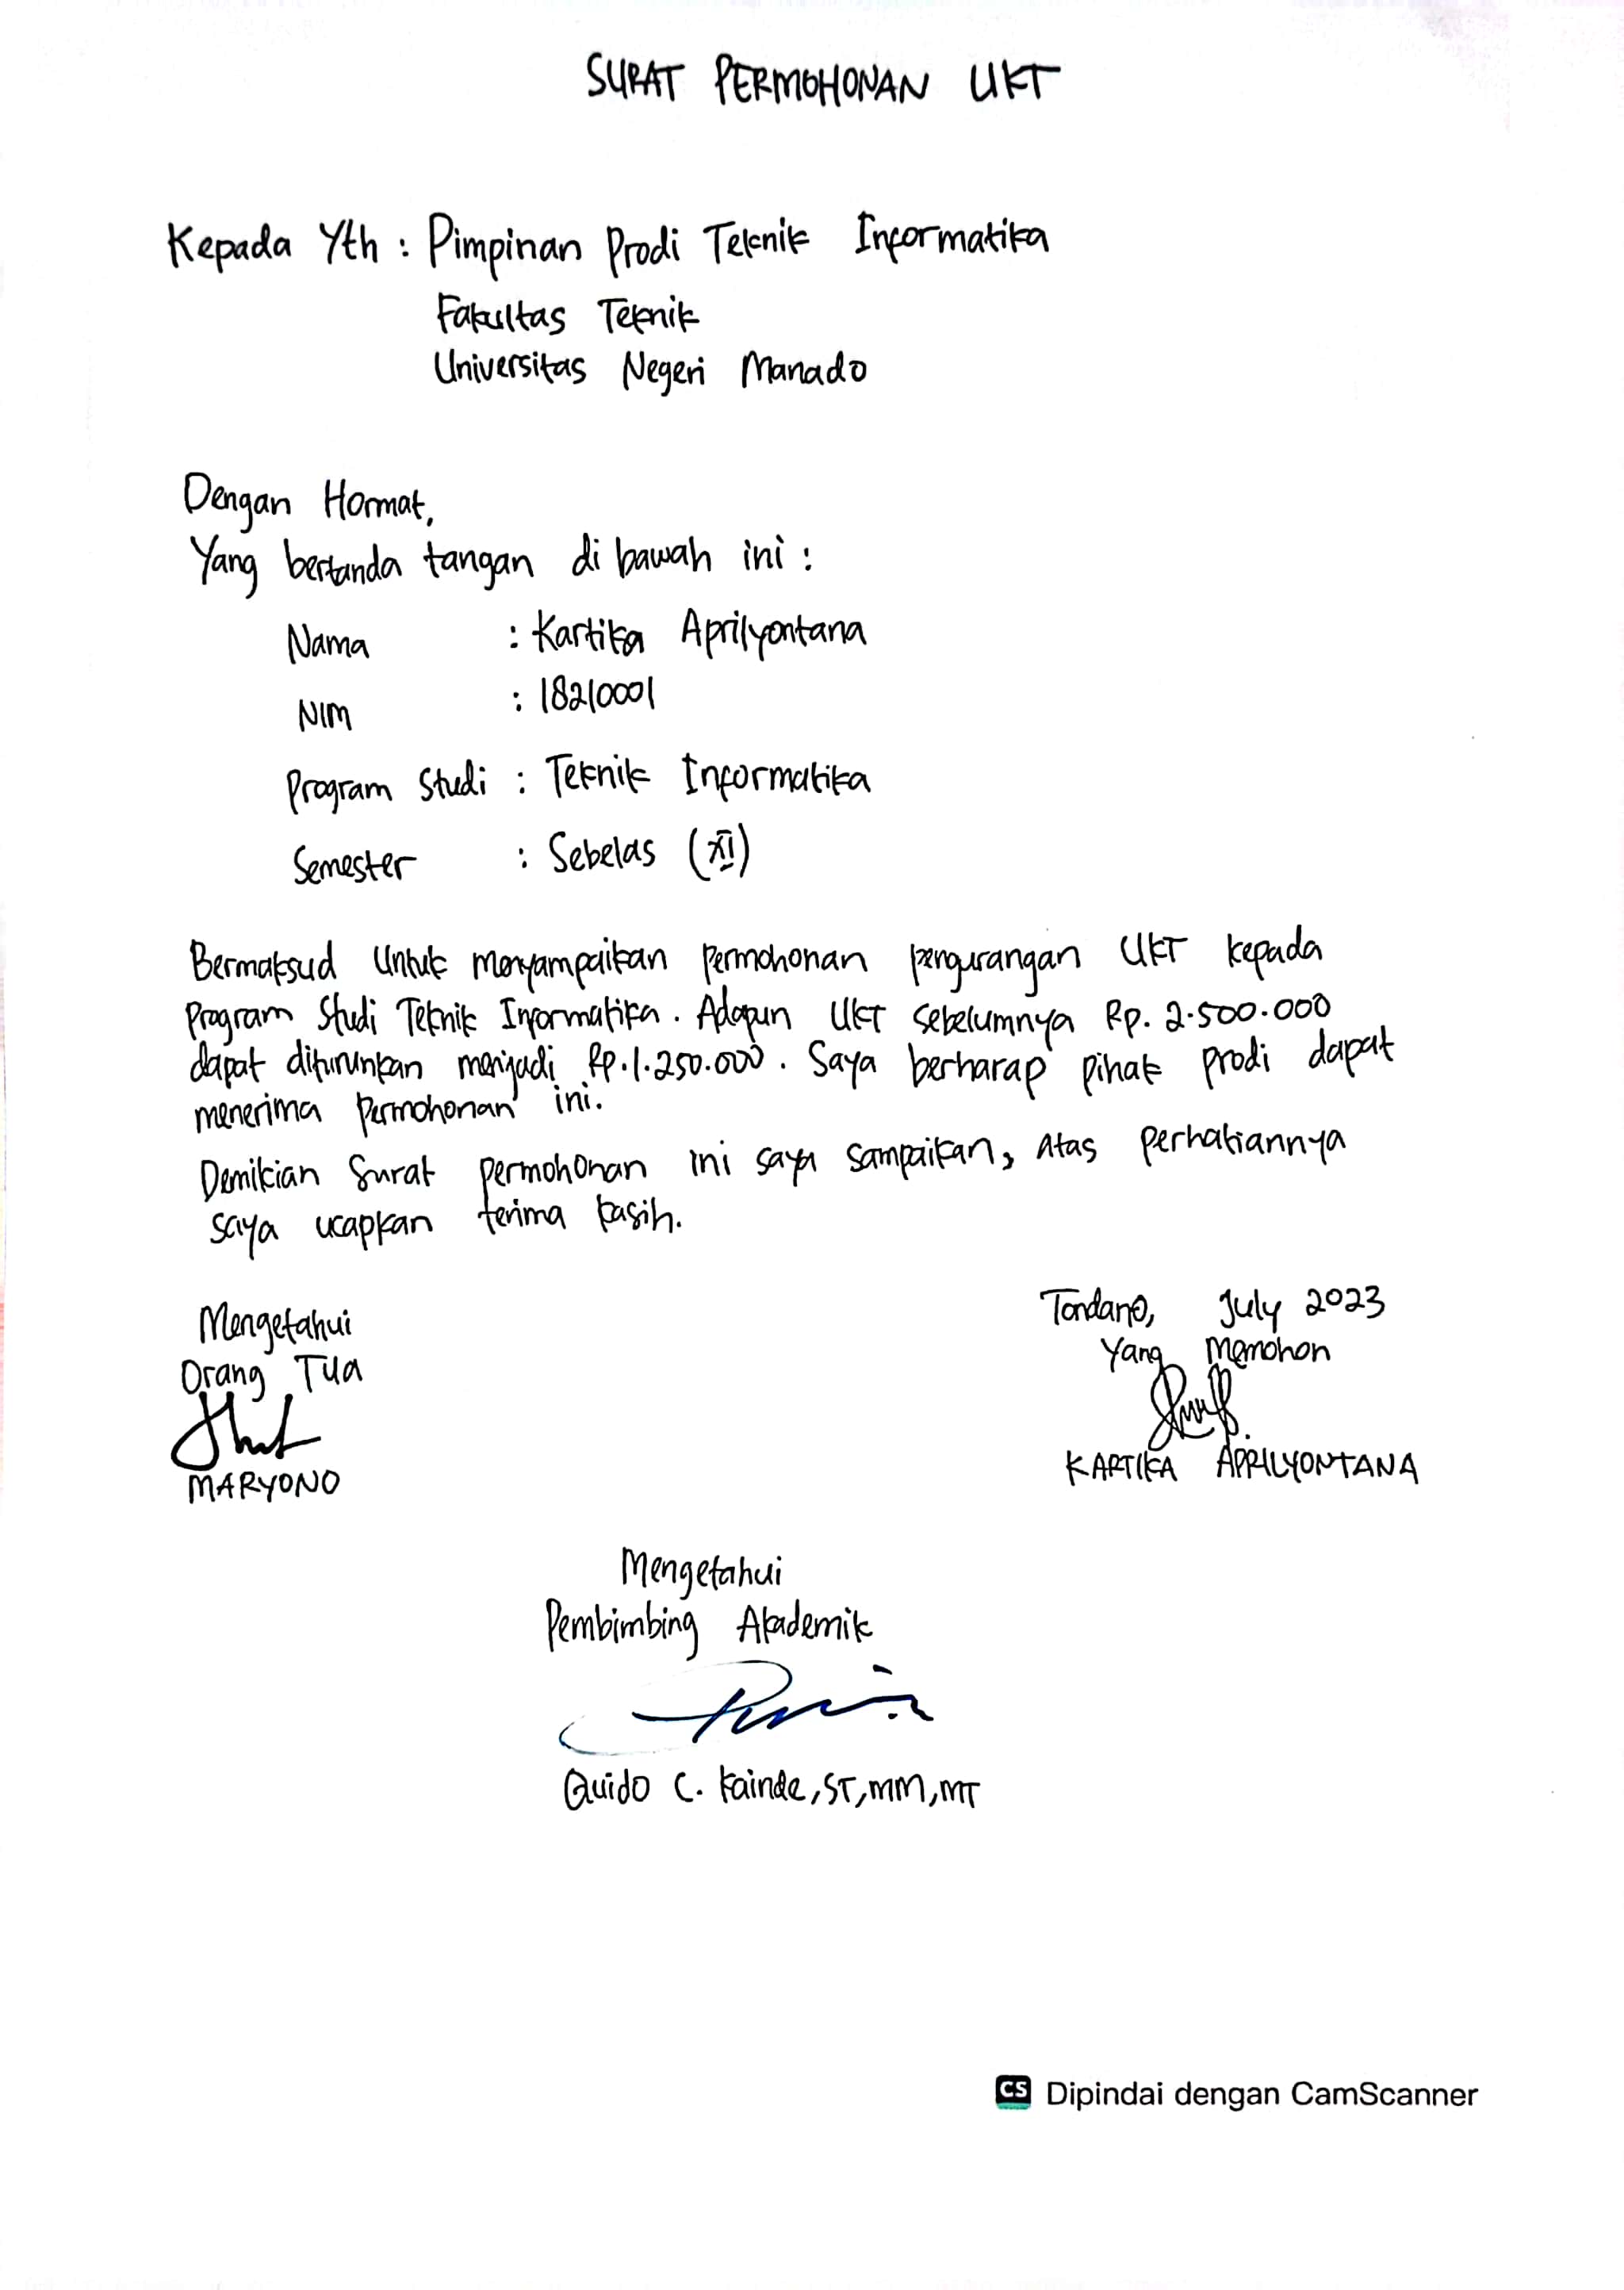 SURAT PERMOHONAN UKT
Kepada Yth : Pimpinan Prodi Teknik Informatika
Fakultas Teknik
Universitas Negeri Manado
Dengan Hormat,
Yang bertanda tangan di bawah ini :
Nama : Kartika Aprilyontana
NIM : 18210001
Program Studi : Teknik Informatika
Semester : Sebelas (XI)
Bermaksud Untuk menyampaikan permohonan pengurangan UKT kepada
Program Studi Teknik Informatika. Adapun UKT sebelumnya Rp. 2.500.000
dapat diturunkan menjadi Rp.1.250.000. Saya berharap pihak prodi dapat
menerima permohonan ini.
Demikian Surat permohonan ini saya sampaikan, Atas perhatiannya
saya ucapkan terima kasih.
Mengetahui
Orang Tua
MARYONO
Tondano, July 2023
Yang Memohon
KARTIKA APRILYONTANA
Mengetahui
Pembimbing Akademik
Quido C. Kainde, ST, MM, MT
CS Dipindai dengan CamScanner